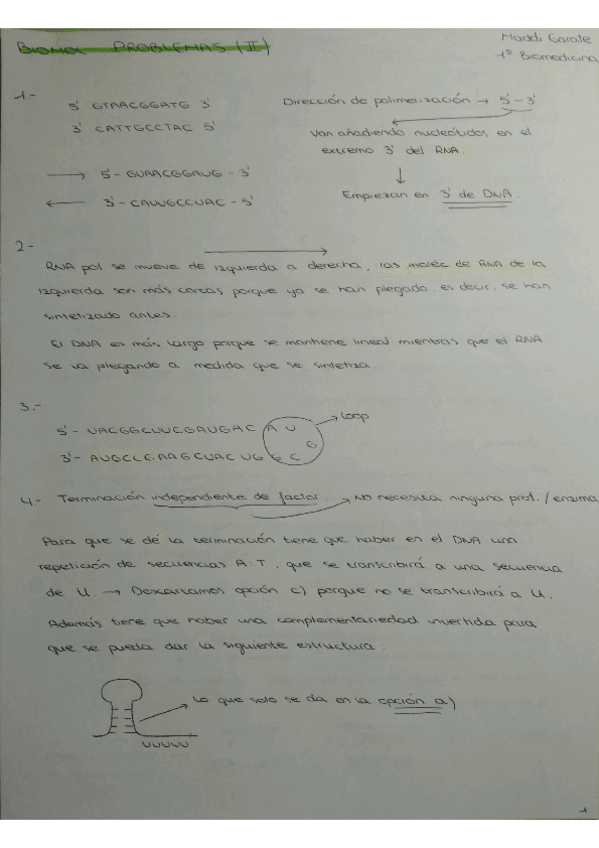 BIOMOL PROBLEMAS (II)
Maddi Garate
1º Biomedicina
1.-
5' GTAACGGATG 3'
3' CATTGCCTAC 5'
Dirección de polimerización → 5'-3'
Van añadiendo nucleótidos en el
extremo 3' del RNA.
↓
Empiezan en 3' de DNA.
→ 5'- GUAACGGAUG - 3'
← 3'- CAUUGCCUAC - 5'
2-
RNA pol se mueve de izquierda a derecha, las moléc de RNA de la
izquierda son más cortas porque ya se han plegado, es decir, se han
sintetizado antes.
El DNA es más largo porque se mantiene lineal mientras que el RNA
se va plegando a medida que se sintetiza
3.-
5'- UACGGCUUCGAUGAC A U
→ Loop
G
3'- AUGCCG.AAGCUAC UG G C
4.- Terminación independente de factor → No necesita ninguna prot./enzima
Para que se dé la terminación tiene que haber en el DNA una
repetición de secuencias A:T, que se transcribirá a una secuencia
de U. → Descartamos opción c) porque no se transcribirá a U.
Además tiene que haber una complementariedad invertida para
que se pueda dar la siguiente estructura:
Lo que solo se da en la opción a)
UUUUU
1